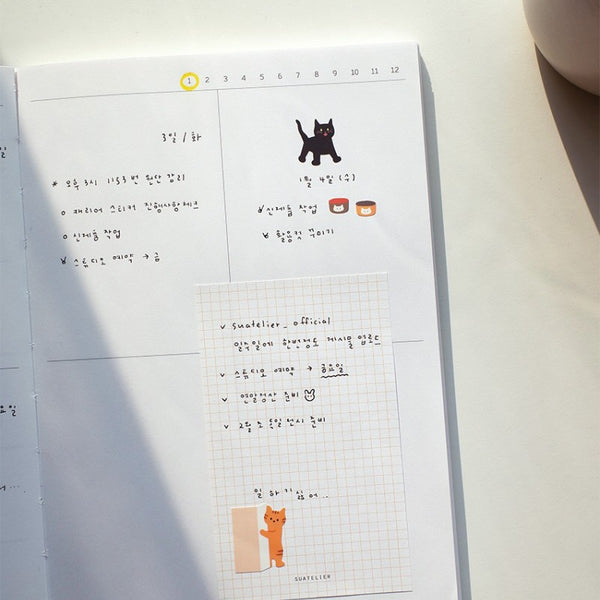 1 2 3 4 5 6 7 8 9 10 11 12
3일 / 화
* 오후 3시 1153번 원단 정리
o 캐리어 스티커 진행사항체크
o 신제품 작업
v 스튜디오 예약 → 금
1월 4일 (수)
v 신제품 작업
v 촬영컷 꾸미기
v suatelier_official
일주일에 한번정도 게시물 업로드
v 스튜디오 예약 → 금요일
v 연말정산 준비
v 2월 초 독일전시 준비
일 하기 싫어...
SUATELIER